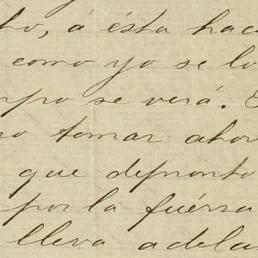 to, á ésta hac
como yo se lo
mpo se verá. E
no tomar ahor
que depronto
por la fuérsa
lleva adela